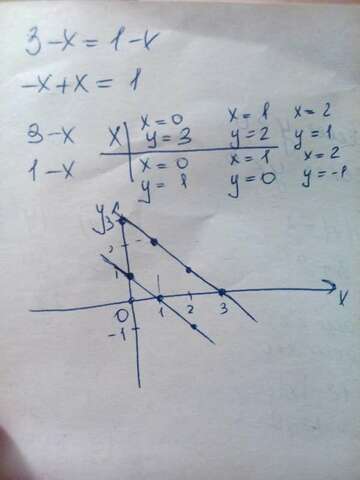 3-x=1-x
-x+x=1
3-x x x=0 x=1 x=2
y=3 y=2 y=1
1-x x=0 x=1 x=2
y=1 y=0 y=-1
y
3
2
1
0 1 2 3 x
-1